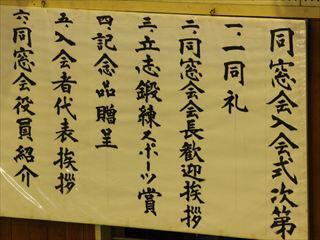 同窓会入会式次第
一、一同礼
二、同窓会会長歓迎挨拶
三、立志鍛練スポーツ賞
四、記念品贈呈
五、入会者代表挨拶
六、同窓会役員紹介